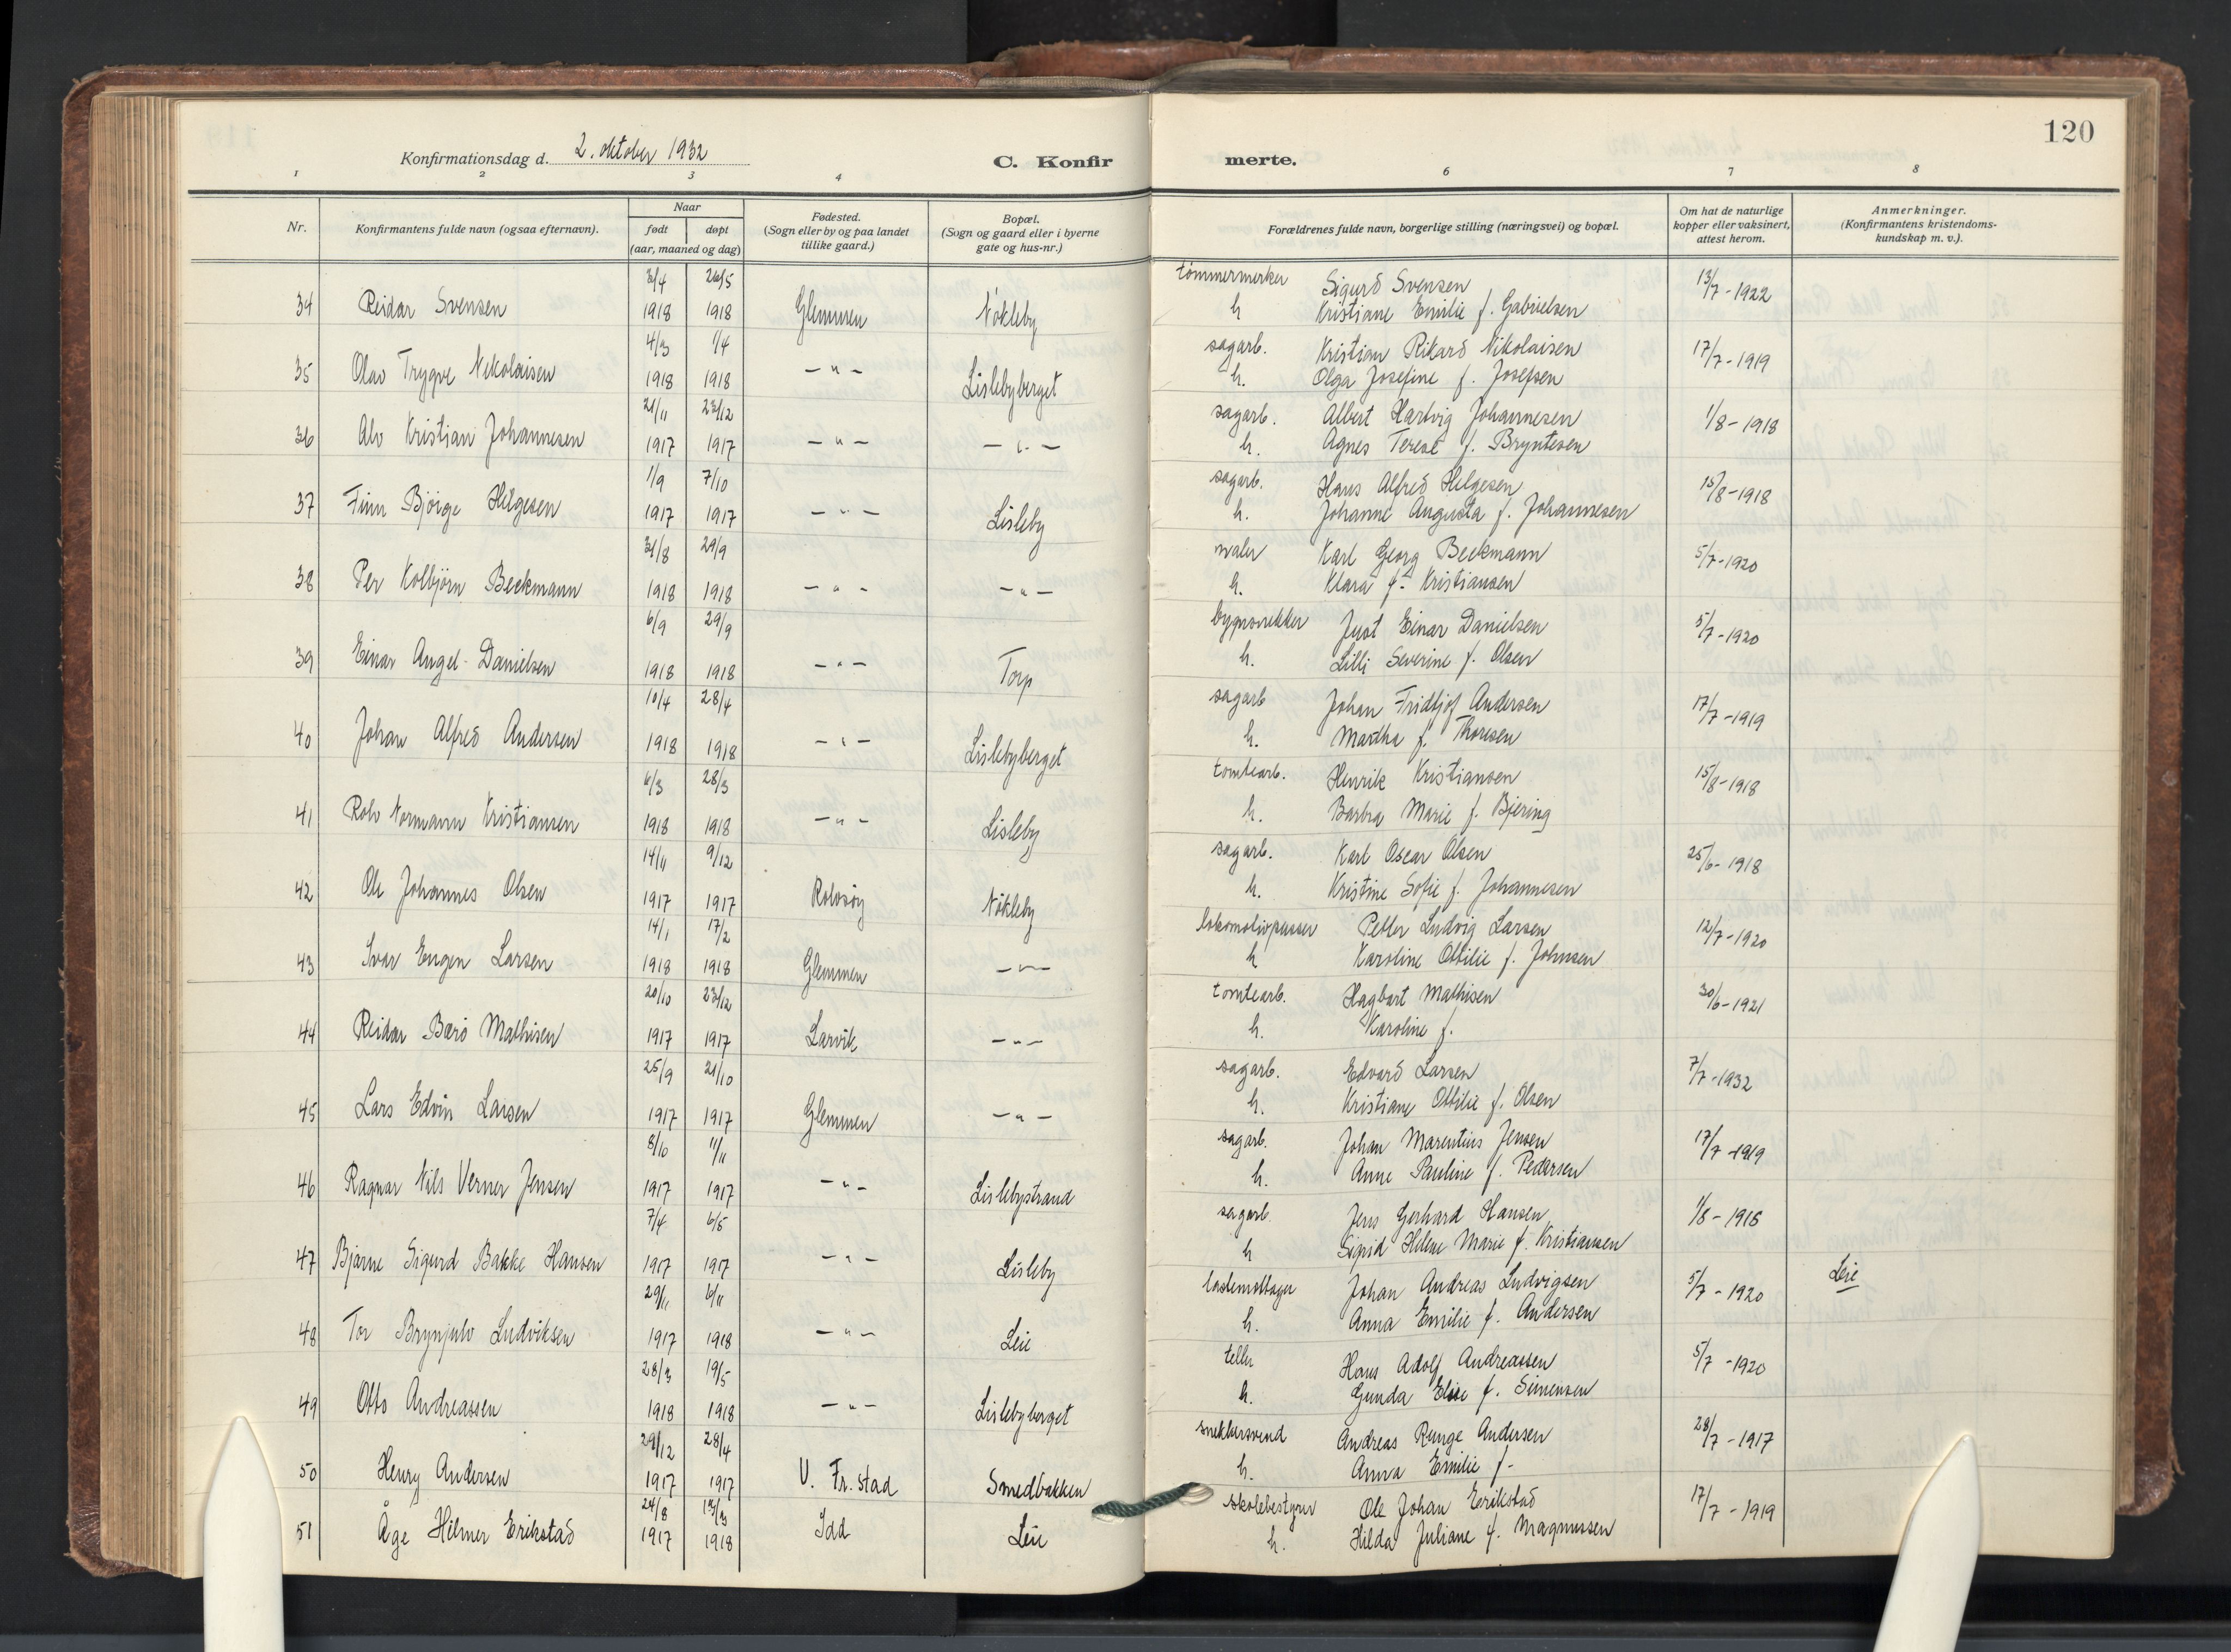 120
Konfirmationsdag d. 2. oktober 1932
C. Konfirmerte.
1 2 3 4 6 7 8
Nr. Konfirmantens fulde navn (ogsaa efternavn). Naar født døpt (aar, maaned og dag) Fødested. (Sogn eller by og paa landet tillike gaard.) Bopæl. (Sogn og gaard eller i byerne gate og hus-nr.) Forældrenes fulde navn, borgerlige stilling (næringsvei) og bopæl. Om hat de naturlige kopper eller vaksinert, attest herom. Anmerkninger. (Konfirmantens kristendomskundskap m. v.).
3/4 26/5 tömmermerker Sigurd Svensen 13/7-1922
34 Reidar Svensen 1918 1918 Glemmen Nökleby h Kristiane Emilie f. Gabrielsen
4/3 1/4 sagarb. Kristian Rikard Nikolaisen 17/7-1919
35 Olav Trygve Nikolaisen 1918 1918 -"- Lislebyberget h. Olga Josefine f. Josefsen
21/11 23/12 sagarb. Albert Hartvig Johannesen 1/8-1918
36 Alv Kristian Johannesen 1917 1917 -"- -"- h. Agnes Terese f. Bryntesen
1/9 7/10 sagarb. Hans Alfred Helgesen 15/8-1918
37 Finn Bjöige Helgesen 1917 1917 -"- Lisleby h. Johanne Augusta f. Johannesen
31/8 29/9 maler Karl Georg Beckmann 5/7-1920
38 Per Kolbjörn Beckmann 1918 1918 -"- -"- h. Klara f. Kristiansen
6/9 29/9 bygnsnekker Just Einar Danielsen 5/7-1920
39 Einar Angel-Danielsen 1918 1918 -"- Torp h. Lilli Severine f. Olsen
10/4 28/4 sagarb Johan Fridtjof Andersen 17/7-1919
40 Johan Alfred Andersen 1918 1918 -"- Lislebyberget h. Martha f. Thoresen
6/3 28/3 tomtearb. Henrik Kristiansen 15/8-1918
41 Rolv Normann Kristiansen 1918 1918 -"- Lisleby h. Barbra Marie f. Bjering
14/11 9/12 sagarb. Karl Oscar Olsen 25/6-1918
42 Ole Johannes Olsen 1917 1917 Rolvsöy Nökleby h. Kristine Sofie f. Johannesen
14/1 17/2 lokomotivpasser Petter Ludvig Larsen 12/7-1920
43 Ivar Eugen Larsen 1918 1918 Glemmen -"- h Karoline Ottilie f. Johnsen
20/10 23/12 tomtearb. Hagbart Mathisen 30/6-1921
44 Reidar Bærö Mathisen 1917 1917 Larvik -"- h. Karoline f.
25/9 21/10 sagarb. Edvard Larsen 7/7-1932
45 Lars Edvin Larsen 1917 1917 Glemmen -"- h. Kristiane Ottilie f. Olsen
8/10 11/11 sagarb. Johan Marentius Jensen 17/7-1919
46 Ragnar Nils Verner Jensen 1917 1917 -"- Lislebystrand h. Anne Pauline f. Pedersen
7/4 6/5 sagarb. Jens Gerhard Hansen 1/8-1918
47 Bjarne Sigurd Bakke Hansen 1917 1917 -"- Lisleby h Sigrid Helene Marie f. Kristiansen
29/11 6/11 lastemottager Johan Andreas Ludvigsen 5/7-1920 Leie
48 Tor Brynjulv Ludviksen 1917 1918 -"- Leie h. Anna Emilie f. Andersen
28/3 19/5 teller Hans Adolf Andreassen 5/7-1920
49 Otto Andreassen 1918 1918 -"- Lislebyberget h. Gunda Elise f. Simensen
29/12 28/4 snekkersvend Andreas Runge Andersen 28/7-1917
50 Henry Andersen 1917 1917 V. Fr.stad Smedbakken h. Anna Emilie f-
24/8 13/3 skolebestyrer Ole Johan Erikstad 17/7-1919
51 Åge Hilmer Erikstad 1917 1918 Idd Leie h. Hilda Juliane f. Magnussen